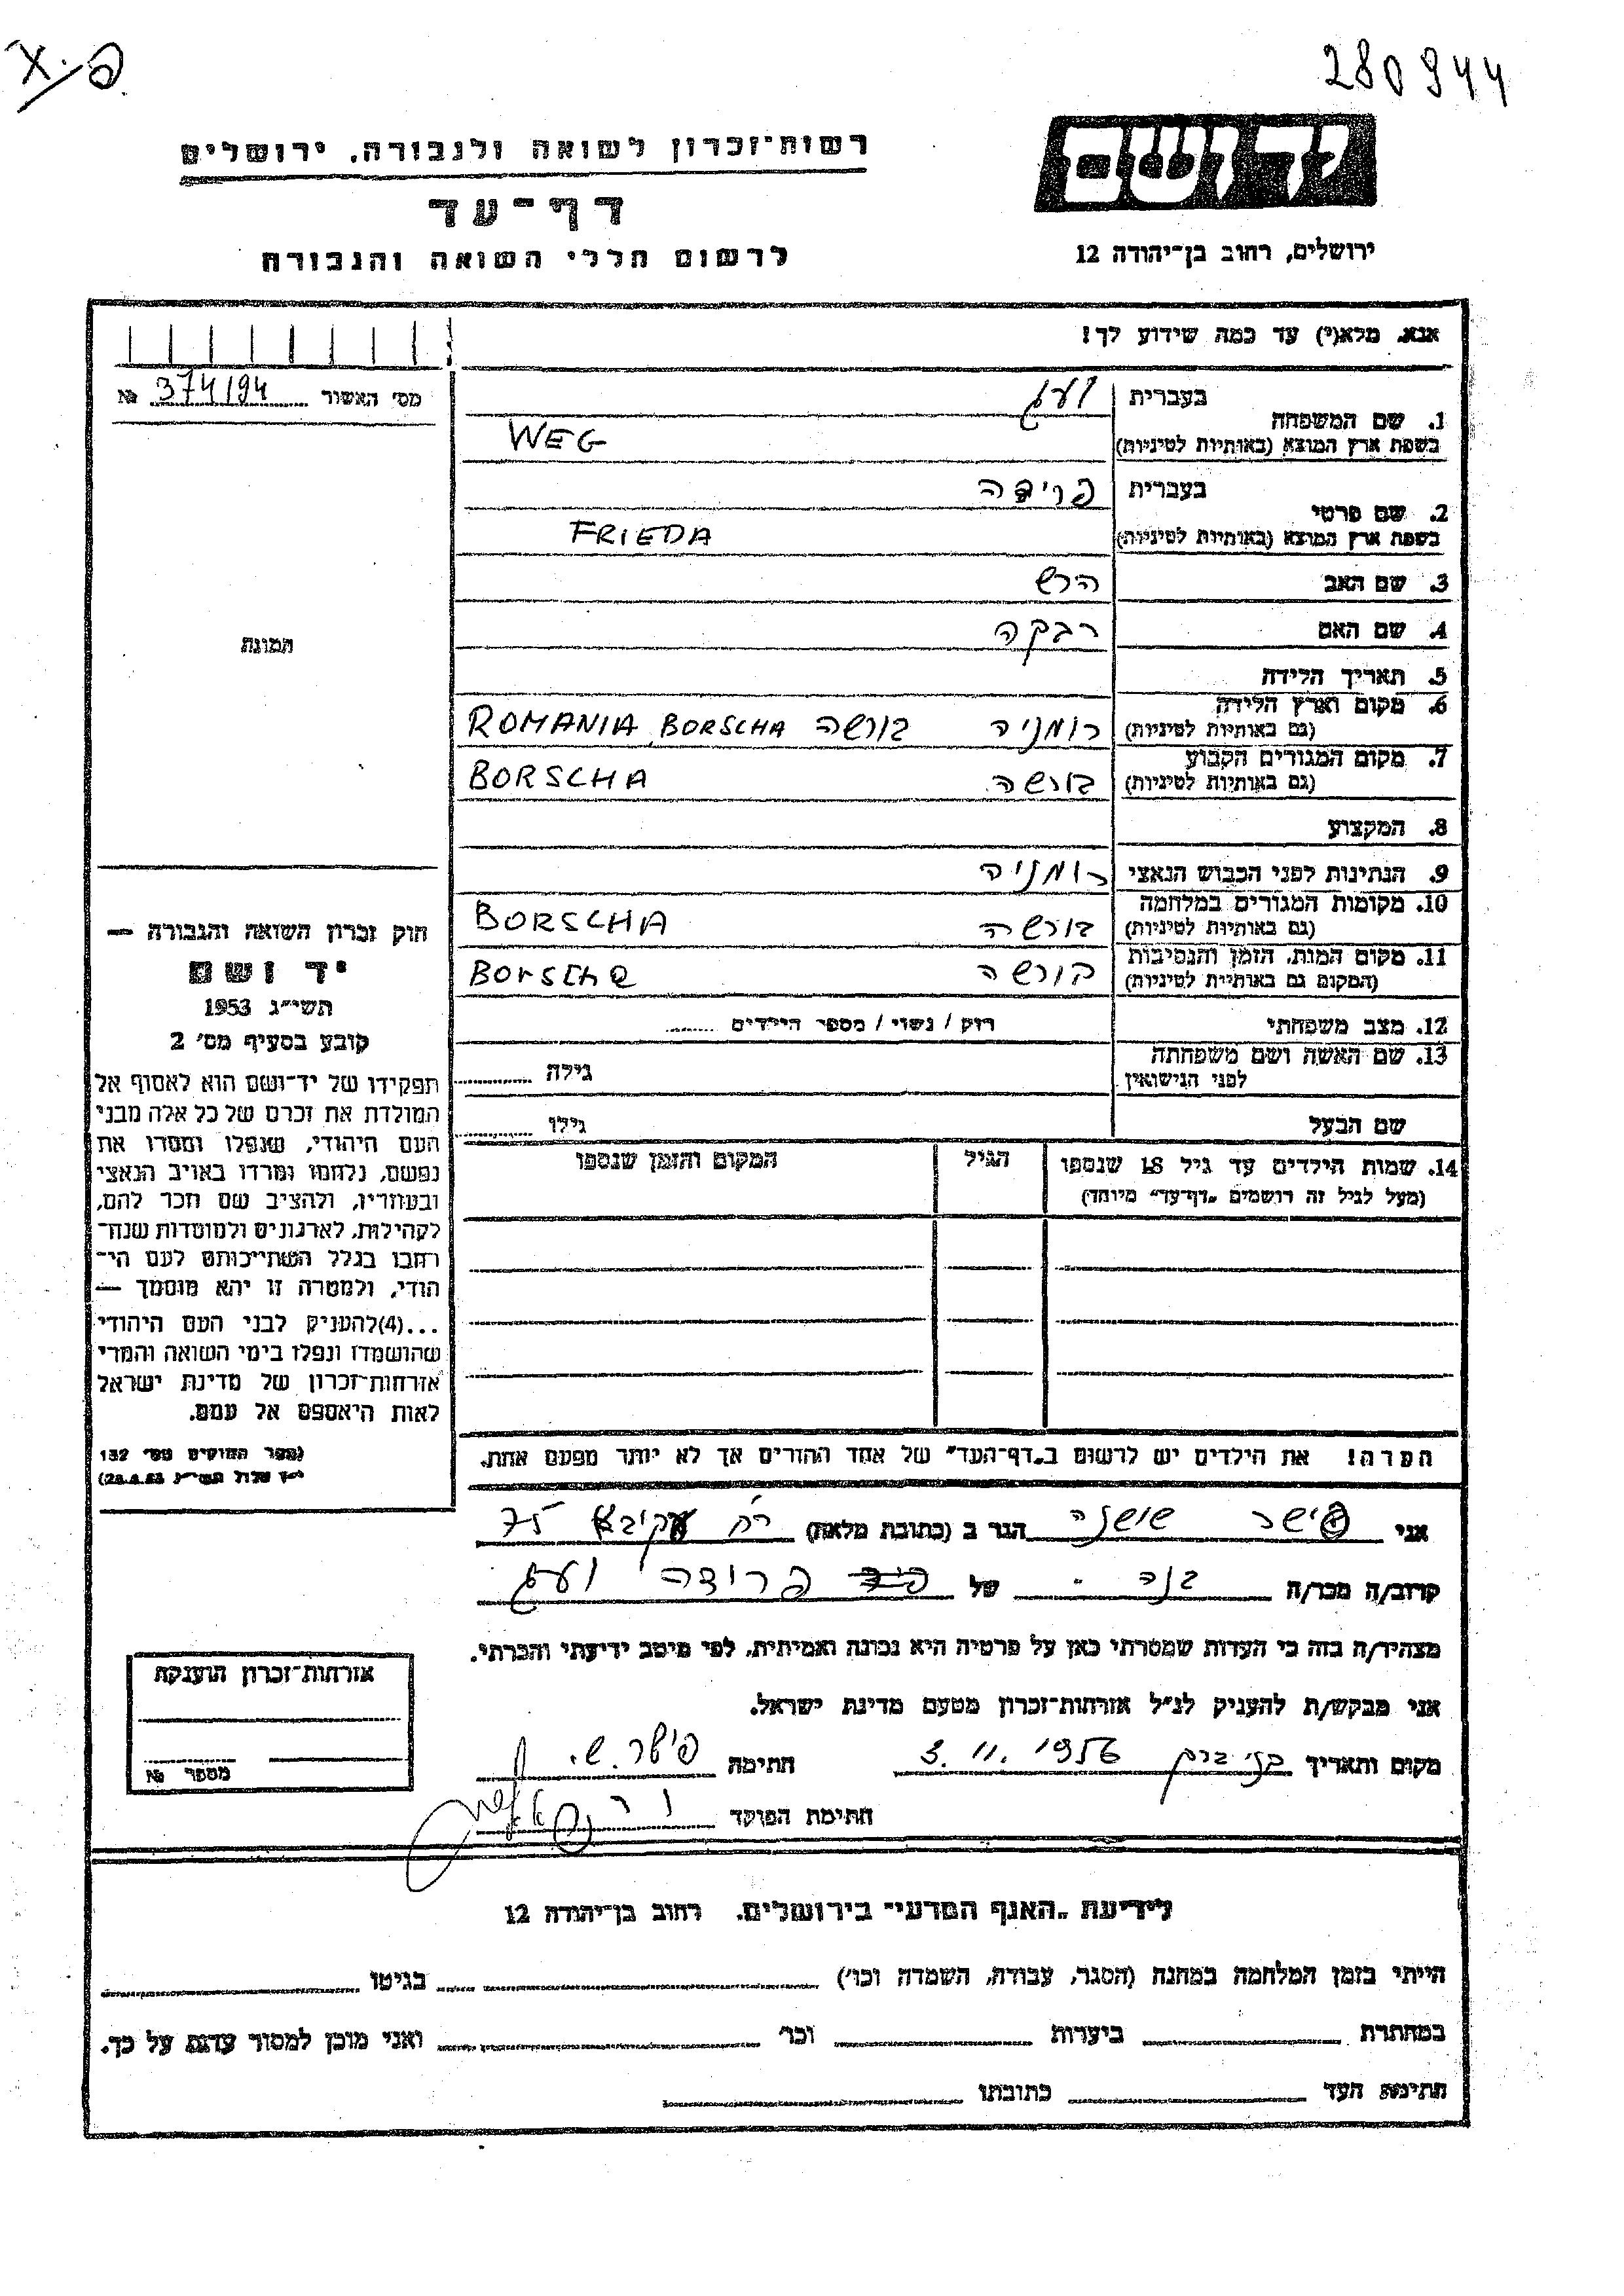 280944
פ.X
יד ושם
רשות־זכרון לשואה ולגבורה, ירושלים
דף־עד
ירושלים, רחוב בן־יהודה 12
לרשום חללי השואה והגבורה
אנא, מלא(י) עד כמה שידוע לך!
מס׳ האשור 374/94 №
1. שם המשפחה
בעברית ועג
בשפת ארץ המוצא (באותיות לטיניות) WEG
2. שם פרטי
בעברית פרידה
בשפת ארץ המוצא (באותיות לטיניות) FRIEDA
3. שם האב הרש
4. שם האם רבקה
תמונת
5. תאריך הלידה
6. מקום וארץ הלידה (גם באותיות לטיניות) רומניה בורשה ROMANIA, BORSCHA
7. מקום המגורים הקבוע (גם באותיות לטיניות) בורשה BORSCHA
8. המקצוע
9. הנתינות לפני הכבוש הנאצי רומניה
10. מקומות המגורים במלחמה (גם באותיות לטיניות) בורשה BORSCHA
11. מקום המות, הזמן והנסיבות (המקום גם באותיות לטיניות) בורשה BorscHa
12. מצב משפחתי רווק / נשוי / מספר הילדים ........
13. שם האשה ושם משפחתה לפני הנישואין גילה
שם הבעל גילו
14. שמות הילדים עד גיל 18 שנספו הגיל המקום והזמן שנספו
(מעל לגיל זה רושמים „דף־עד״ מיוחד)
חוק זכרון השואה והגבורה —
יד ושם
תשי״ג 1953
קובע בסעיף מס׳ 2
תפקידו של יד־ושם הוא לאסוף אל
המולדת את זכרם של כל אלה מבני
העם היהודי, שנפלו ומסרו את
נפשם, נלחמו ומרדו באויב הנאצי
ובעוזריו, ולהציב שם וזכר להם,
לקהילות, לארגונים ולמוסדות שנח־
רבו בגלל השתייכותם לעם הי־
הודי, ולמטרה זו יהא מוסמך —
...(4)להעניק לבני העם היהודי
שהושמדו ונפלו בימי השואה והמרי
אזרחות־זכרון של מדינת ישראל
לאות היאספם אל עמם.
(ספר החוקים מס׳ 132
הערה! את הילדים יש לרשום ב„דף־העד״ של אחד ההורים אך לא יותר מפעם אחת.
אני פישר שושנה הגר ב (כתובת מלאה) רח עקיבא 75
קרוב/ה מכר/ה בנה של פרידה ועג
מצהיר/ה בזה כי העדות שמסרתי כאן על פרטיה היא נכונה ואמיתית, לפי מיטב ידיעתי והכרתי.
אני מבקש/ת להעניק לנ״ל אזרחות־זכרון מטעם מדינת ישראל.
מקום ותאריך בני ברק 3. 11. 1956 חתימה פישר. ש.
חתימת הפוקד
אזרחות־זכרון הוענקה
מספר №
לידיעת „האנף המדעי״ בירושלים, רחוב בן־יהודה 12
הייתי בזמן המלחמה במחנה (הסגר, עבודה, השמדה וכו׳) בגיטו
במחתרת ביערות וכו׳ ואני מוכן למסור עדות על כך.
חתימת העד כתובתו